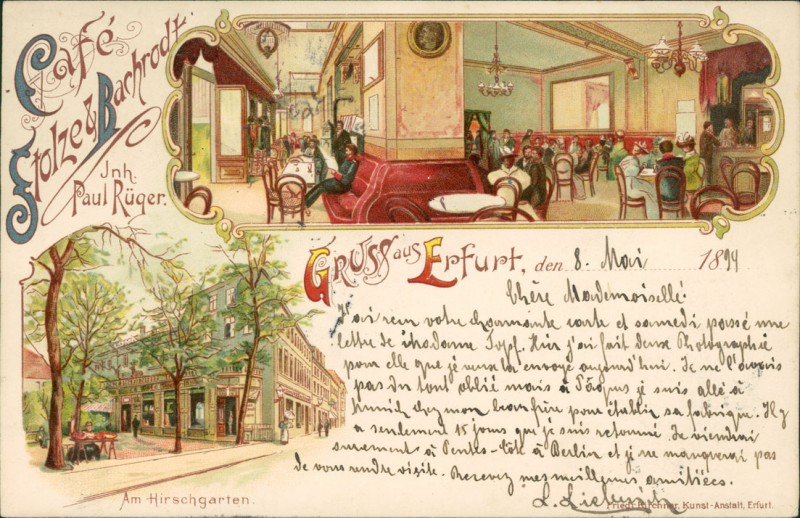 Café
Stolze & Bachrodt.
Inh.
Paul Rüger.
Gruss aus Erfurt, den 8. Mai 1899
Chère Mademoiselle!
ai reçu votre charmante carte et samedi passé une
lettre de Madame Topf. Hier j'ai fait deux Photographie
pour elle que je veux lui envoyé aujourd'hui. Je ne l'avais
pas du tout oblié mais à je suis allé à
chez mon beau frère pour établir sa fabrique. Il y
a seulement 15 jours que je suis retourné. Je viendrai
surement à Pentes-Côte à Berlin et je ne manquerai pas
de vous rendre visite. Recevez mes meilleures amitiées.
L.
Am Hirschgarten.
Friedr. Kirchner, Kunst-Anstalt, Erfurt.